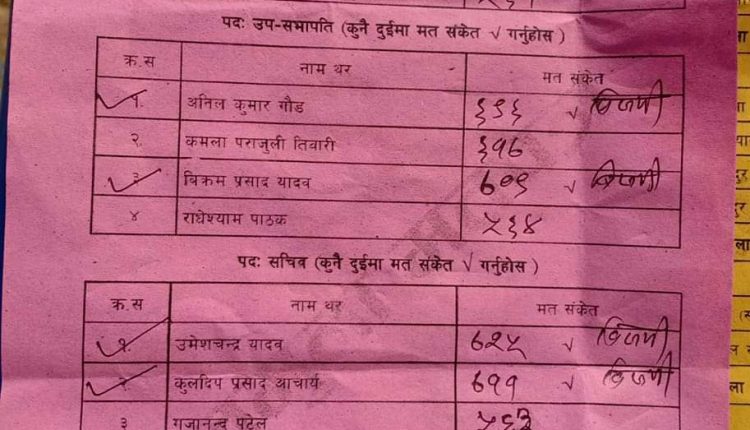 पदः उप-सभापति (कुनै दुईमा मत संकेत √ गर्नुहोस )
क्र.स नाम थर मत संकेत
१. अनिल कुमार गौड ६९६ √ विजयी
२. कमला पराजुली तिवारी ६१७
३ बिक्रम प्रसाद यादव ७०९ √ विजयी
४ राधेश्याम पाठक ५६४
पदः सचिव (कुनै दुईमा मत संकेत √ गर्नुहोस )
क्र.स नाम थर मत संकेत
१. उमेशचन्द्र यादव ७२५ √ विजयी
२. कुलदिप प्रसाद आचार्य ७११ √ विजयी
३ गजानन्द पटेल ५६३